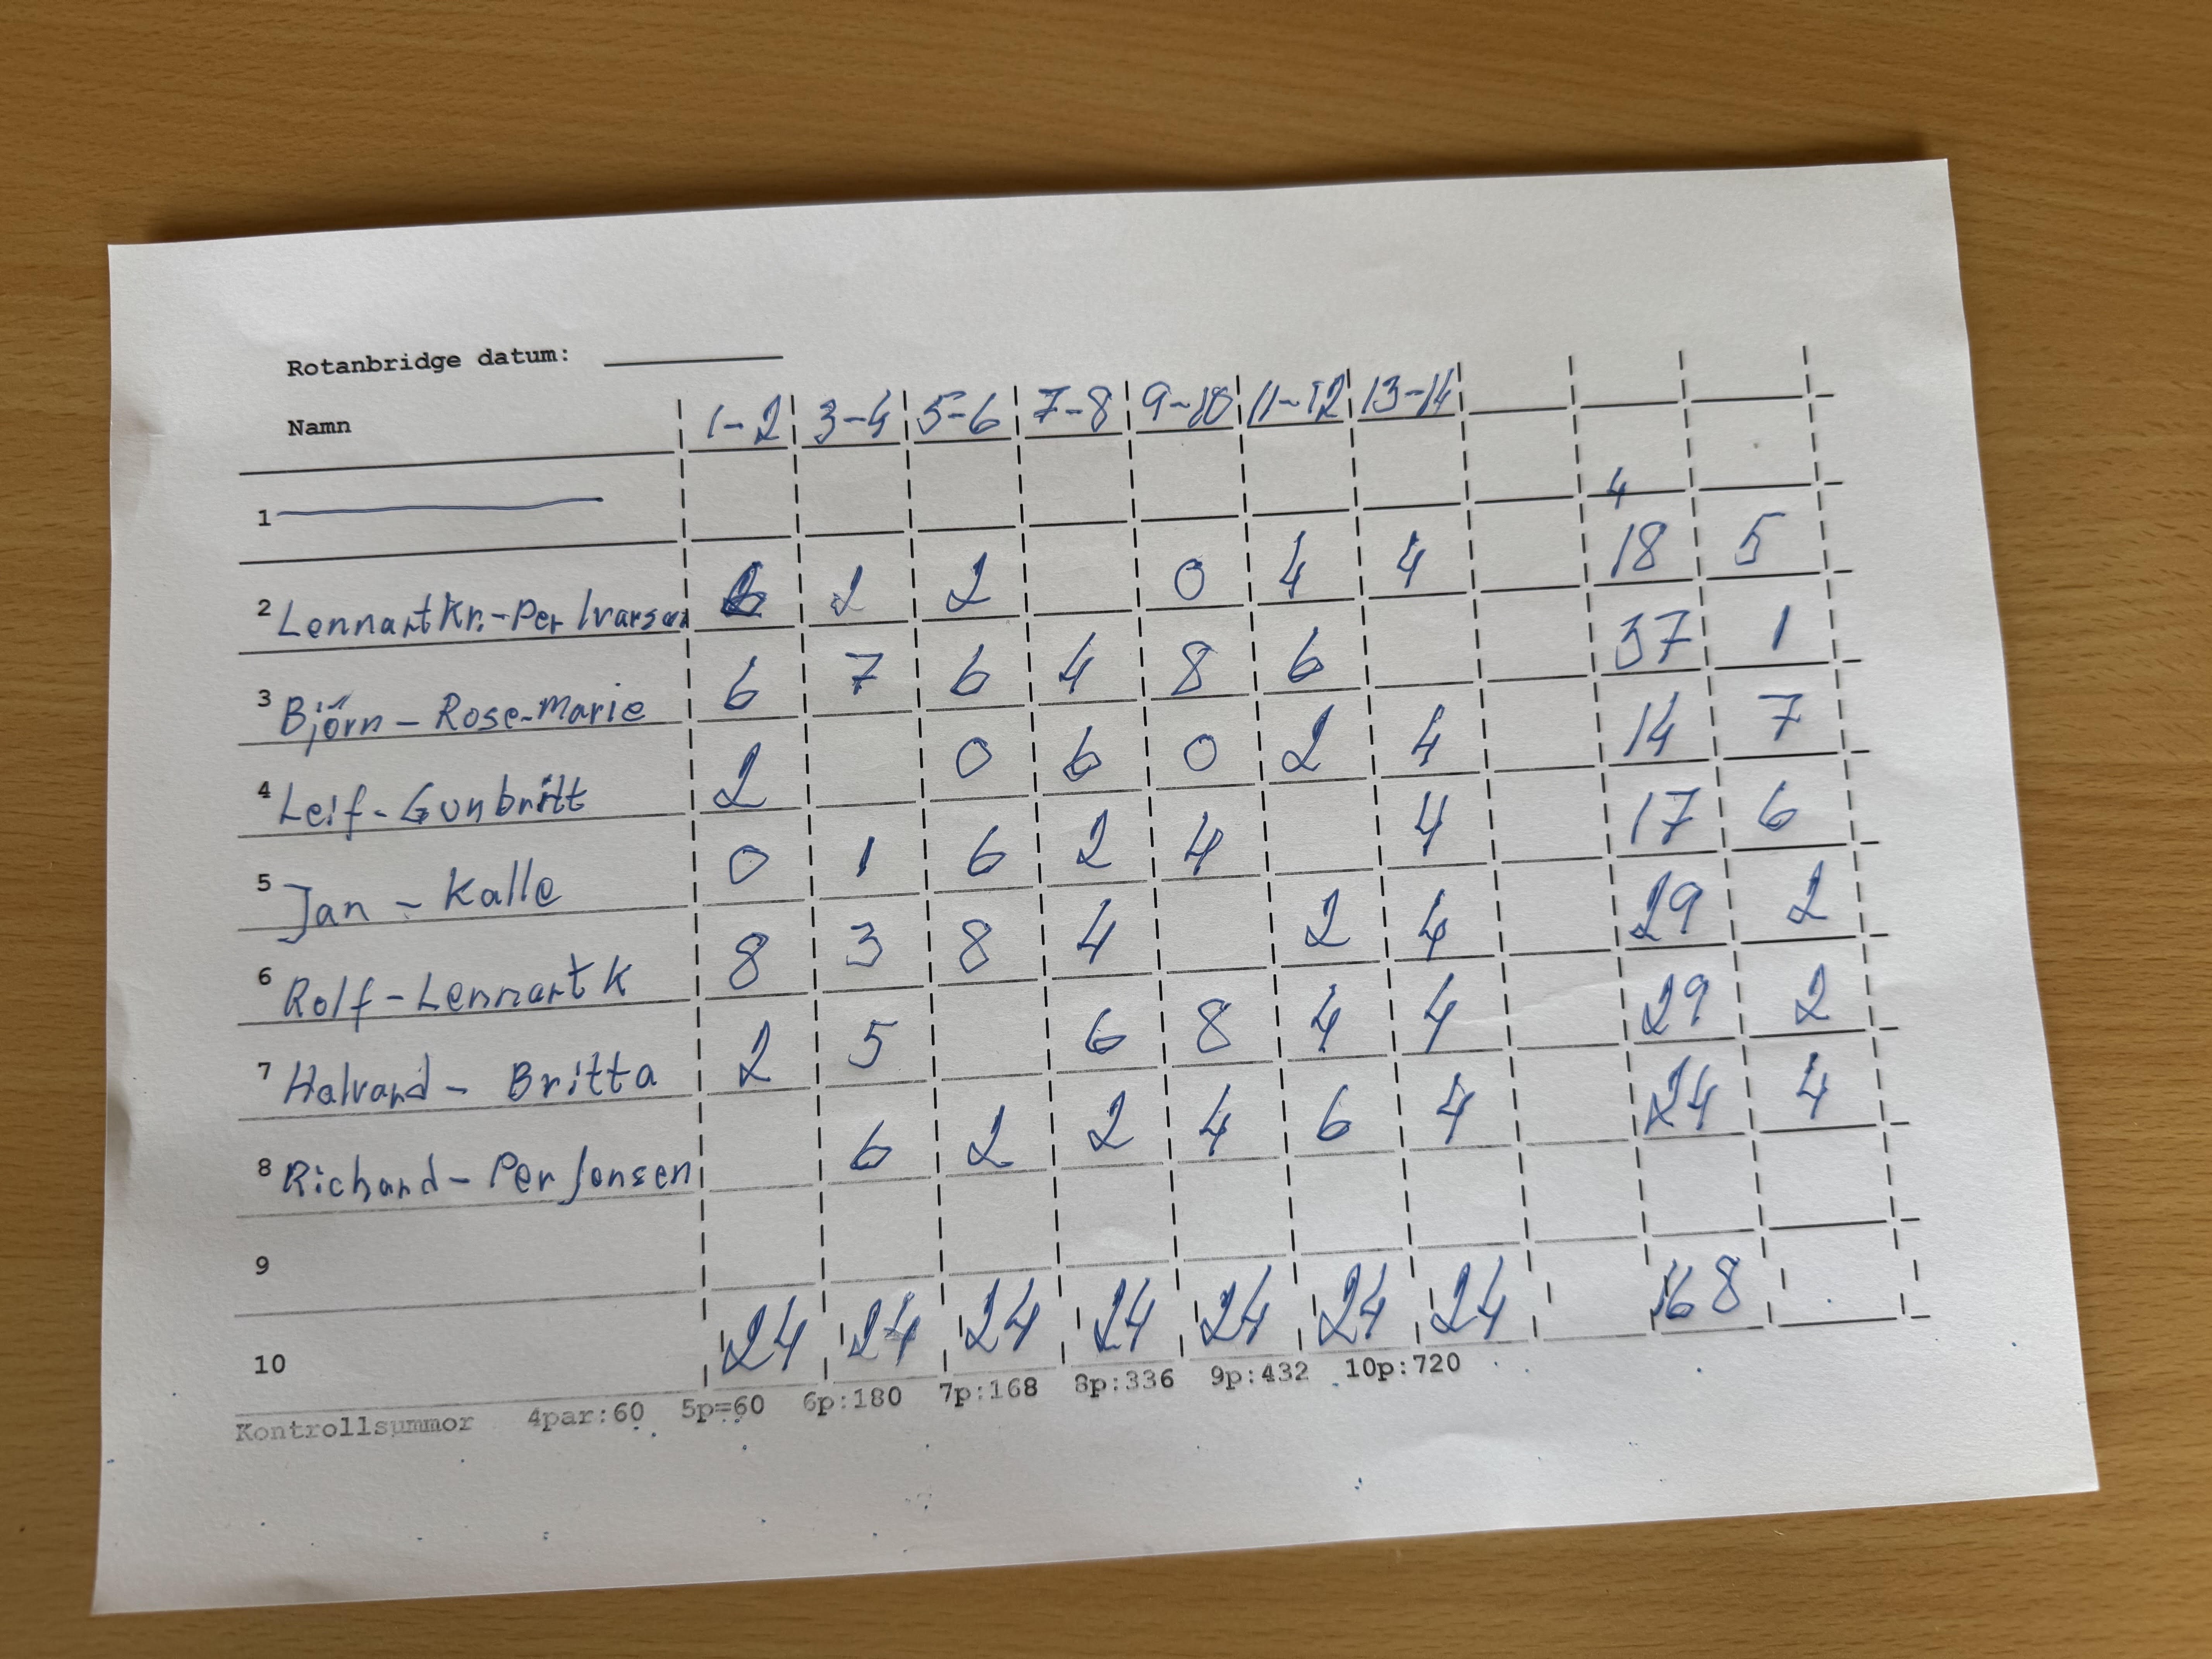 Rotanbridge datum:
Namn 1-2 3-4 5-6 7-8 9-10 11-12 13-14
1 4
2 Lennart Kr.-Per Ivarson 6 2 2 0 4 4 18 5
3 Björn - Rose-Marie 6 7 6 4 8 6 37 1
4 Leif - Gunbritt 2 0 6 0 2 4 14 7
5 Jan - Kalle 0 1 6 2 4 4 17 6
6 Rolf - Lennart K 8 3 8 4 2 4 29 2
7 Halvard - Britta 2 5 6 8 4 4 29 2
8 Richard - Per Jonsen 6 2 2 4 6 4 24 4
9
10 24 24 24 24 24 24 24 168
Kontrollsummor 4par:60 5p=60 6p:180 7p:168 8p:336 9p:432 10p:720